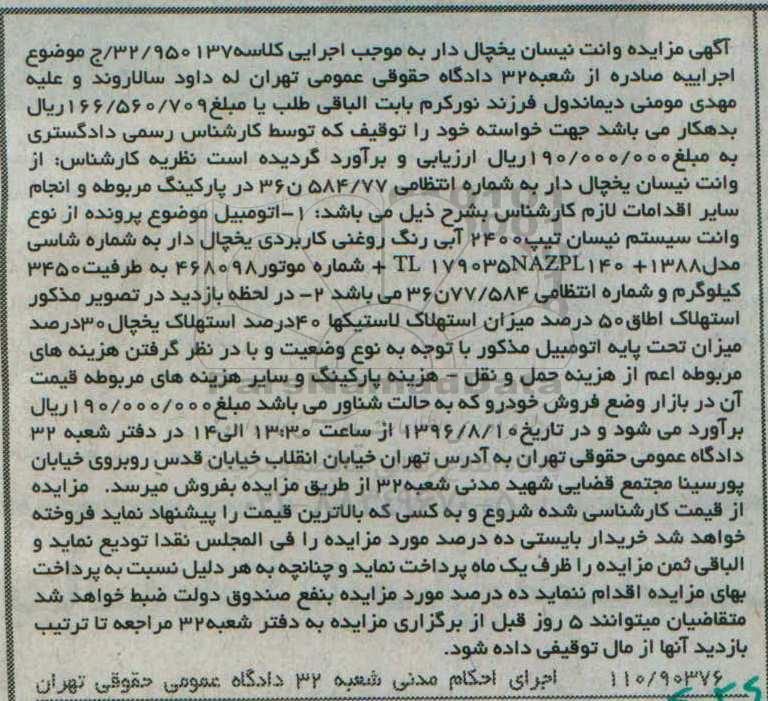 آگهی مزایده وانت نیسان یخچال دار به موجب اجرایی کلاسه۳۲/۹۵۰۱۳۷/ج موضوع
اجراییه صادره از شعبه۳۲ دادگاه حقوقی عمومی تهران له داود سالاروند و علیه
مهدی مومنی دیماندول فرزند نورکرم بابت الباقی طلب یا مبلغ۱۶۶/۵۶۰/۷۰۹ریال
بدهکار می باشد جهت خواسته خود را توقیف که توسط کارشناس رسمی دادگستری
به مبلغ۱۹۰/۰۰۰/۰۰۰ریال ارزیابی و برآورد گردیده است نظریه کارشناس: از
وانت نیسان یخچال دار به شماره انتظامی ۵۸۴/۷۷ ن۳۶ در پارکینگ مربوطه و انجام
سایر اقدامات لازم کارشناس بشرح ذیل می باشد: ۱-اتومبیل موضوع پرونده از نوع
وانت سیستم نیسان تیپ۲۴۰۰ آبی رنگ روغنی کاربردی یخچال دار به شماره شاسی
مدل۱۳۸۸+ TL ۱۷۹۰۳۵NAZPL۱۴۰ + شماره موتور۴۶۸۰۹۸ به ظرفیت۳۴۵۰
کیلوگرم و شماره انتظامی ۷۷/۵۸۴ن۳۶ می باشد ۲- در لحظه بازدید در تصویر مذکور
استهلاک اطاق۵۰ درصد میزان استهلاک لاستیکها ۴۰درصد استهلاک یخچال۳۰درصد
میزان تحت پایه اتومبیل مذکور با توجه به نوع وضعیت و با در نظر گرفتن هزینه های
مربوطه اعم از هزینه حمل و نقل - هزینه پارکینگ و سایر هزینه های مربوطه قیمت
آن در بازار وضع فروش خودرو که به حالت شناور می باشد مبلغ۱۹۰/۰۰۰/۰۰۰ریال
برآورد می شود و در تاریخ۱۳۹۶/۸/۱۰ از ساعت ۱۳:۳۰ الی۱۴ در دفتر شعبه ۳۲
دادگاه عمومی حقوقی تهران به آدرس تهران خیابان انقلاب خیابان قدس روبروی خیابان
پورسینا مجتمع قضایی شهید مدنی شعبه۳۲ از طریق مزایده بفروش میرسد. مزایده
از قیمت کارشناسی شده شروع و به کسی که بالاترین قیمت را پیشنهاد نماید فروخته
خواهد شد خریدار بایستی ده درصد مورد مزایده را فی المجلس نقدا تودیع نماید و
الباقی ثمن مزایده را ظرف یک ماه پرداخت نماید و چنانچه به هر دلیل نسبت به پرداخت
بهای مزایده اقدام ننماید ده درصد مورد مزایده بنفع صندوق دولت ضبط خواهد شد
متقاضیان میتوانند ۵ روز قبل از برگزاری مزایده به دفتر شعبه۳۲ مراجعه تا ترتیب
بازدید آنها از مال توقیفی داده شود.
۱۱۰/۹۰۳۷۶ اجرای احکام مدنی شعبه ۳۲ دادگاه عمومی حقوقی تهران